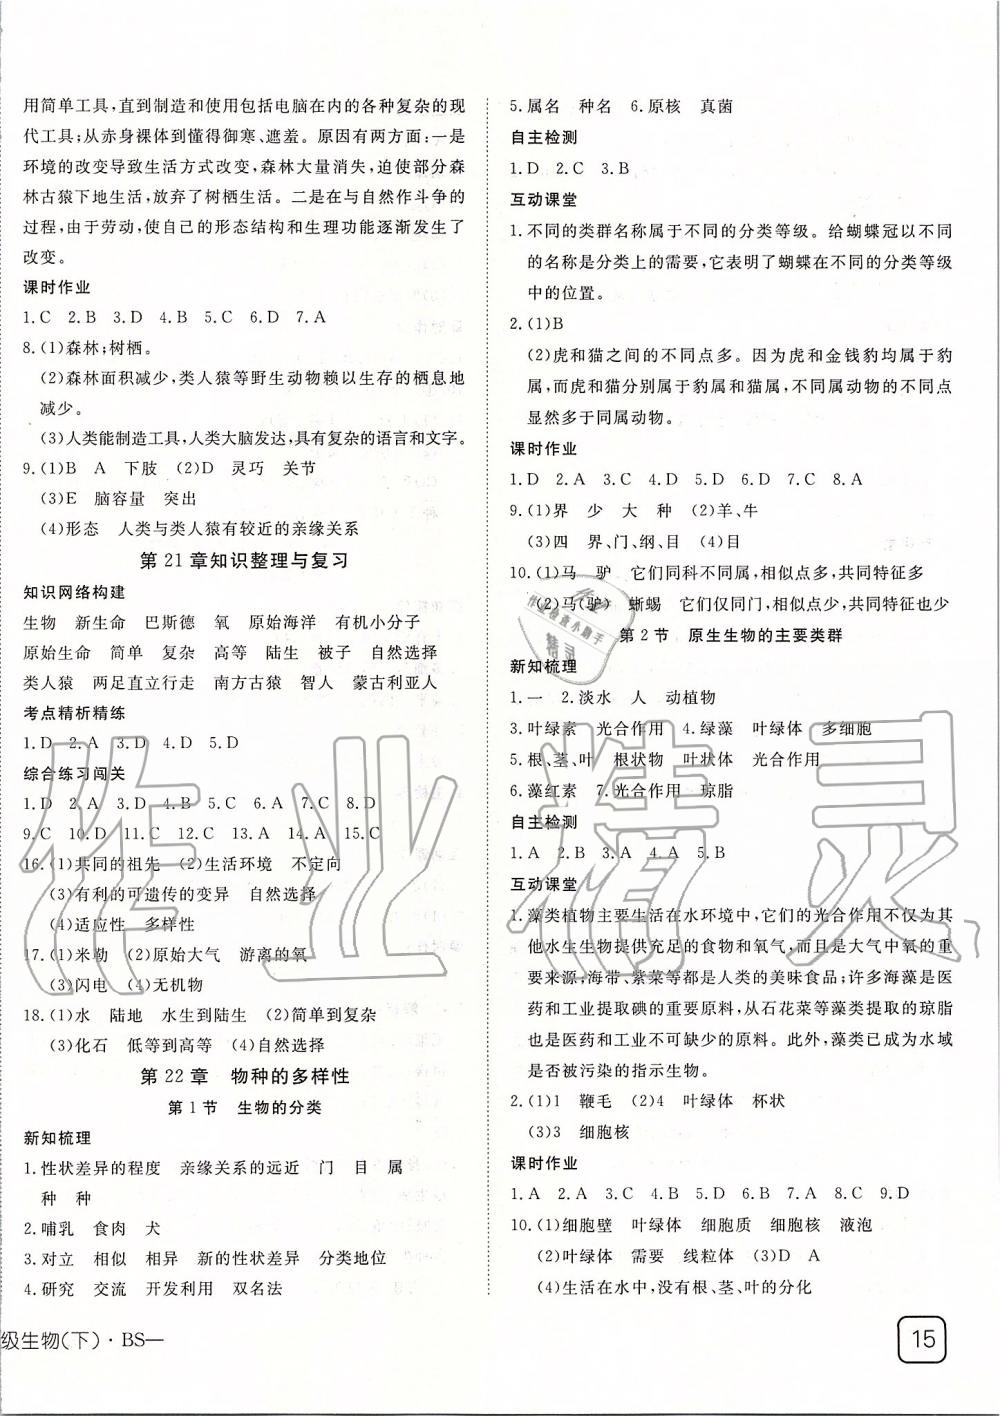 用简单工具，直到制造和使用包括电脑在内的各种复杂的现
代工具；从赤身裸体到懂得御寒、遮羞。原因有两方面：一是
环境的改变导致生活方式改变，森林大量消失，迫使部分森
林古猿下地生活，放弃了树栖生活。二是在与自然作斗争的
过程，由于劳动，使自己的形态结构和生理功能逐渐发生了
改变。
课时作业
1.C 2.B 3.D 4.B 5.C 6.D 7.A
8.(1)森林；树栖。
(2)森林面积减少，类人猿等野生动物赖以生存的栖息地
减少。
(3)人类能制造工具，人类大脑发达，具有复杂的语言和文字。
9.(1)B A 下肢 (2)D 灵巧 关节
(3)E 脑容量 突出
(4)形态 人类与类人猿有较近的亲缘关系
第21章知识整理与复习
知识网络构建
生物 新生命 巴斯德 氧 原始海洋 有机小分子
原始生命 简单 复杂 高等 陆生 被子 自然选择
类人猿 两足直立行走 南方古猿 智人 蒙古利亚人
考点精析精练
1.D 2.A 3.D 4.D 5.D
综合练习闯关
1.D 2.A 3.D 4.B 5.C 6.C 7.C 8.D
9.C 10.D 11.C 12.C 13.A 14.A 15.C
16.(1)共同的祖先 (2)生活环境 不定向
(3)有利的可遗传的变异 自然选择
(4)适应性 多样性
17.(1)米勒 (2)原始大气 游离的氧
(3)闪电 (4)无机物
18.(1)水 陆地 水生到陆生 (2)简单到复杂
(3)化石 低等到高等 (4)自然选择
第22章 物种的多样性
第1节 生物的分类
新知梳理
1.性状差异的程度 亲缘关系的远近 门 目 属
种 种
2.哺乳 食肉 犬
3.对立 相似 相异 新的性状差异 分类地位
4.研究 交流 开发利用 双名法
级生物(下)·BS—
5.属名 种名 6.原核 真菌
自主检测
1.D 2.C 3.B
互动课堂
1.不同的类群名称属于不同的分类等级。给蝴蝶冠以不同
的名称是分类上的需要，它表明了蝴蝶在不同的分类等级
中的位置。
2.(1)B
(2)虎和猫之间的不同点多。因为虎和金钱豹均属于豹
属，而虎和猫分别属于豹属和猫属，不同属动物的不同点
显然多于同属动物。
课时作业
1.D 2.A 3.C 4.D 5.D 6.C 7.C 8.A
9.(1)界 少 大 种 (2)羊、牛
(3)四 界、门、纲、目 (4)目
10.(1)马 驴 它们同科不同属，相似点多，共同特征多
(2)马(驴) 蜥蜴 它们仅同门，相似点少，共同特征也少
第2节 原生生物的主要类群
新知梳理
1.一 2.淡水 人 动植物
3.叶绿素 光合作用 4.绿藻 叶绿体 多细胞
5.根、茎、叶 根状物 叶状体 光合作用
6.藻红素 7.光合作用 琼脂
自主检测
1.A 2.B 3.A 4.A 5.B
互动课堂
1.藻类植物主要生活在水环境中，它们的光合作用不仅为其
他水生生物提供充足的食物和氧气，而且是大气中氧的重
要来源；海带、紫菜等都是人类的美味食品；许多海藻是医
药和工业提取碘的重要原料，从石花菜等藻类提取的琼脂
也是医药和工业不可缺少的原料。此外，藻类已成为水域
是否被污染的指示生物。
2.(1)1 鞭毛 (2)4 叶绿体 杯状
(3)3 细胞核
课时作业
1.A 2.A 3.C 4.B 5.D 6.B 7.B 8.C 9.D
10.(1)细胞壁 叶绿体 细胞质 细胞核 液泡
(2)叶绿体 需要 线粒体 (3)D A
(4)生活在水中，没有根、茎、叶的分化
15
作业精灵
作业检查小助手
精灵